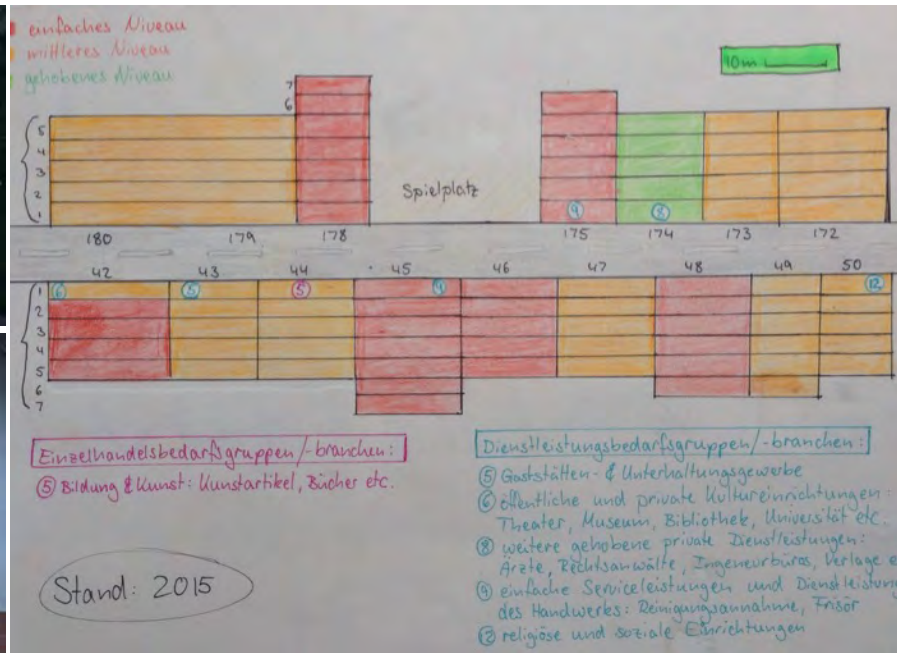 einfaches Niveau
mittleres Niveau
gehobenes Niveau
10m
7
6
5
4
3
2
1
Spielplatz
9
8
180 179 178 175 174 173 172
42 43 44 45 46 47 48 49 50
1
2
3
4
5
6
7
6
5
5
9
12
Einzelhandelsbedarfsgruppen/-branchen:
5 Bildung & Kunst: Kunstartikel, Bücher etc.
Stand: 2015
Dienstleistungsbedarfsgruppen/-branchen:
5 Gaststätten- & Unterhaltungsgewerbe
6 öffentliche und private Kultureinrichtungen:
Theater, Museum, Bibliothek, Universität etc.
8 weitere gehobene private Dienstleistungen:
Ärzte, Rechtsanwälte, Ingeneurbüros, Verlage e
9 einfache Serviceleistungen und Dienstleistung
des Handwerks: Reinigungsannahme, Frisör
12 religiöse und soziale Einrichtungen